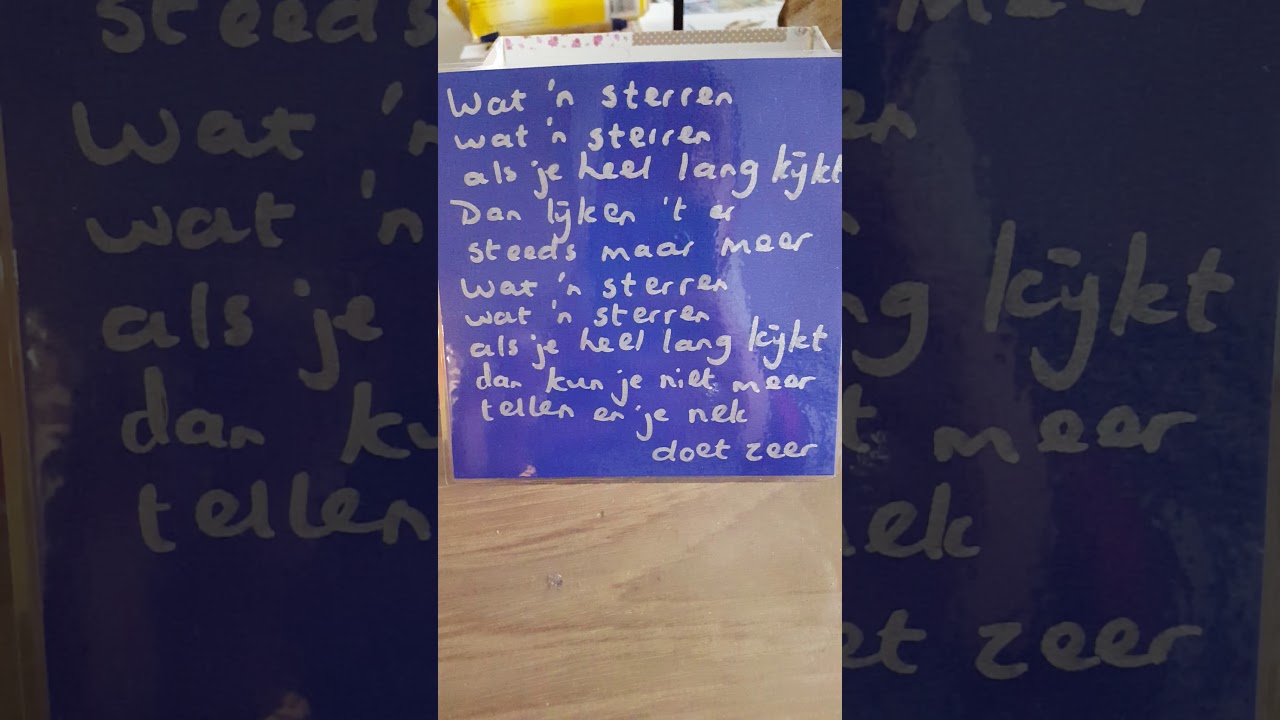 Wat 'n sterren
wat 'n sterren
als je heel lang kijkt
Dan lijken 't er
steeds maar meer
wat 'n sterren
wat 'n sterren
als je heel lang kijkt
dan kun je niet meer
tellen en je nek
doet zeer